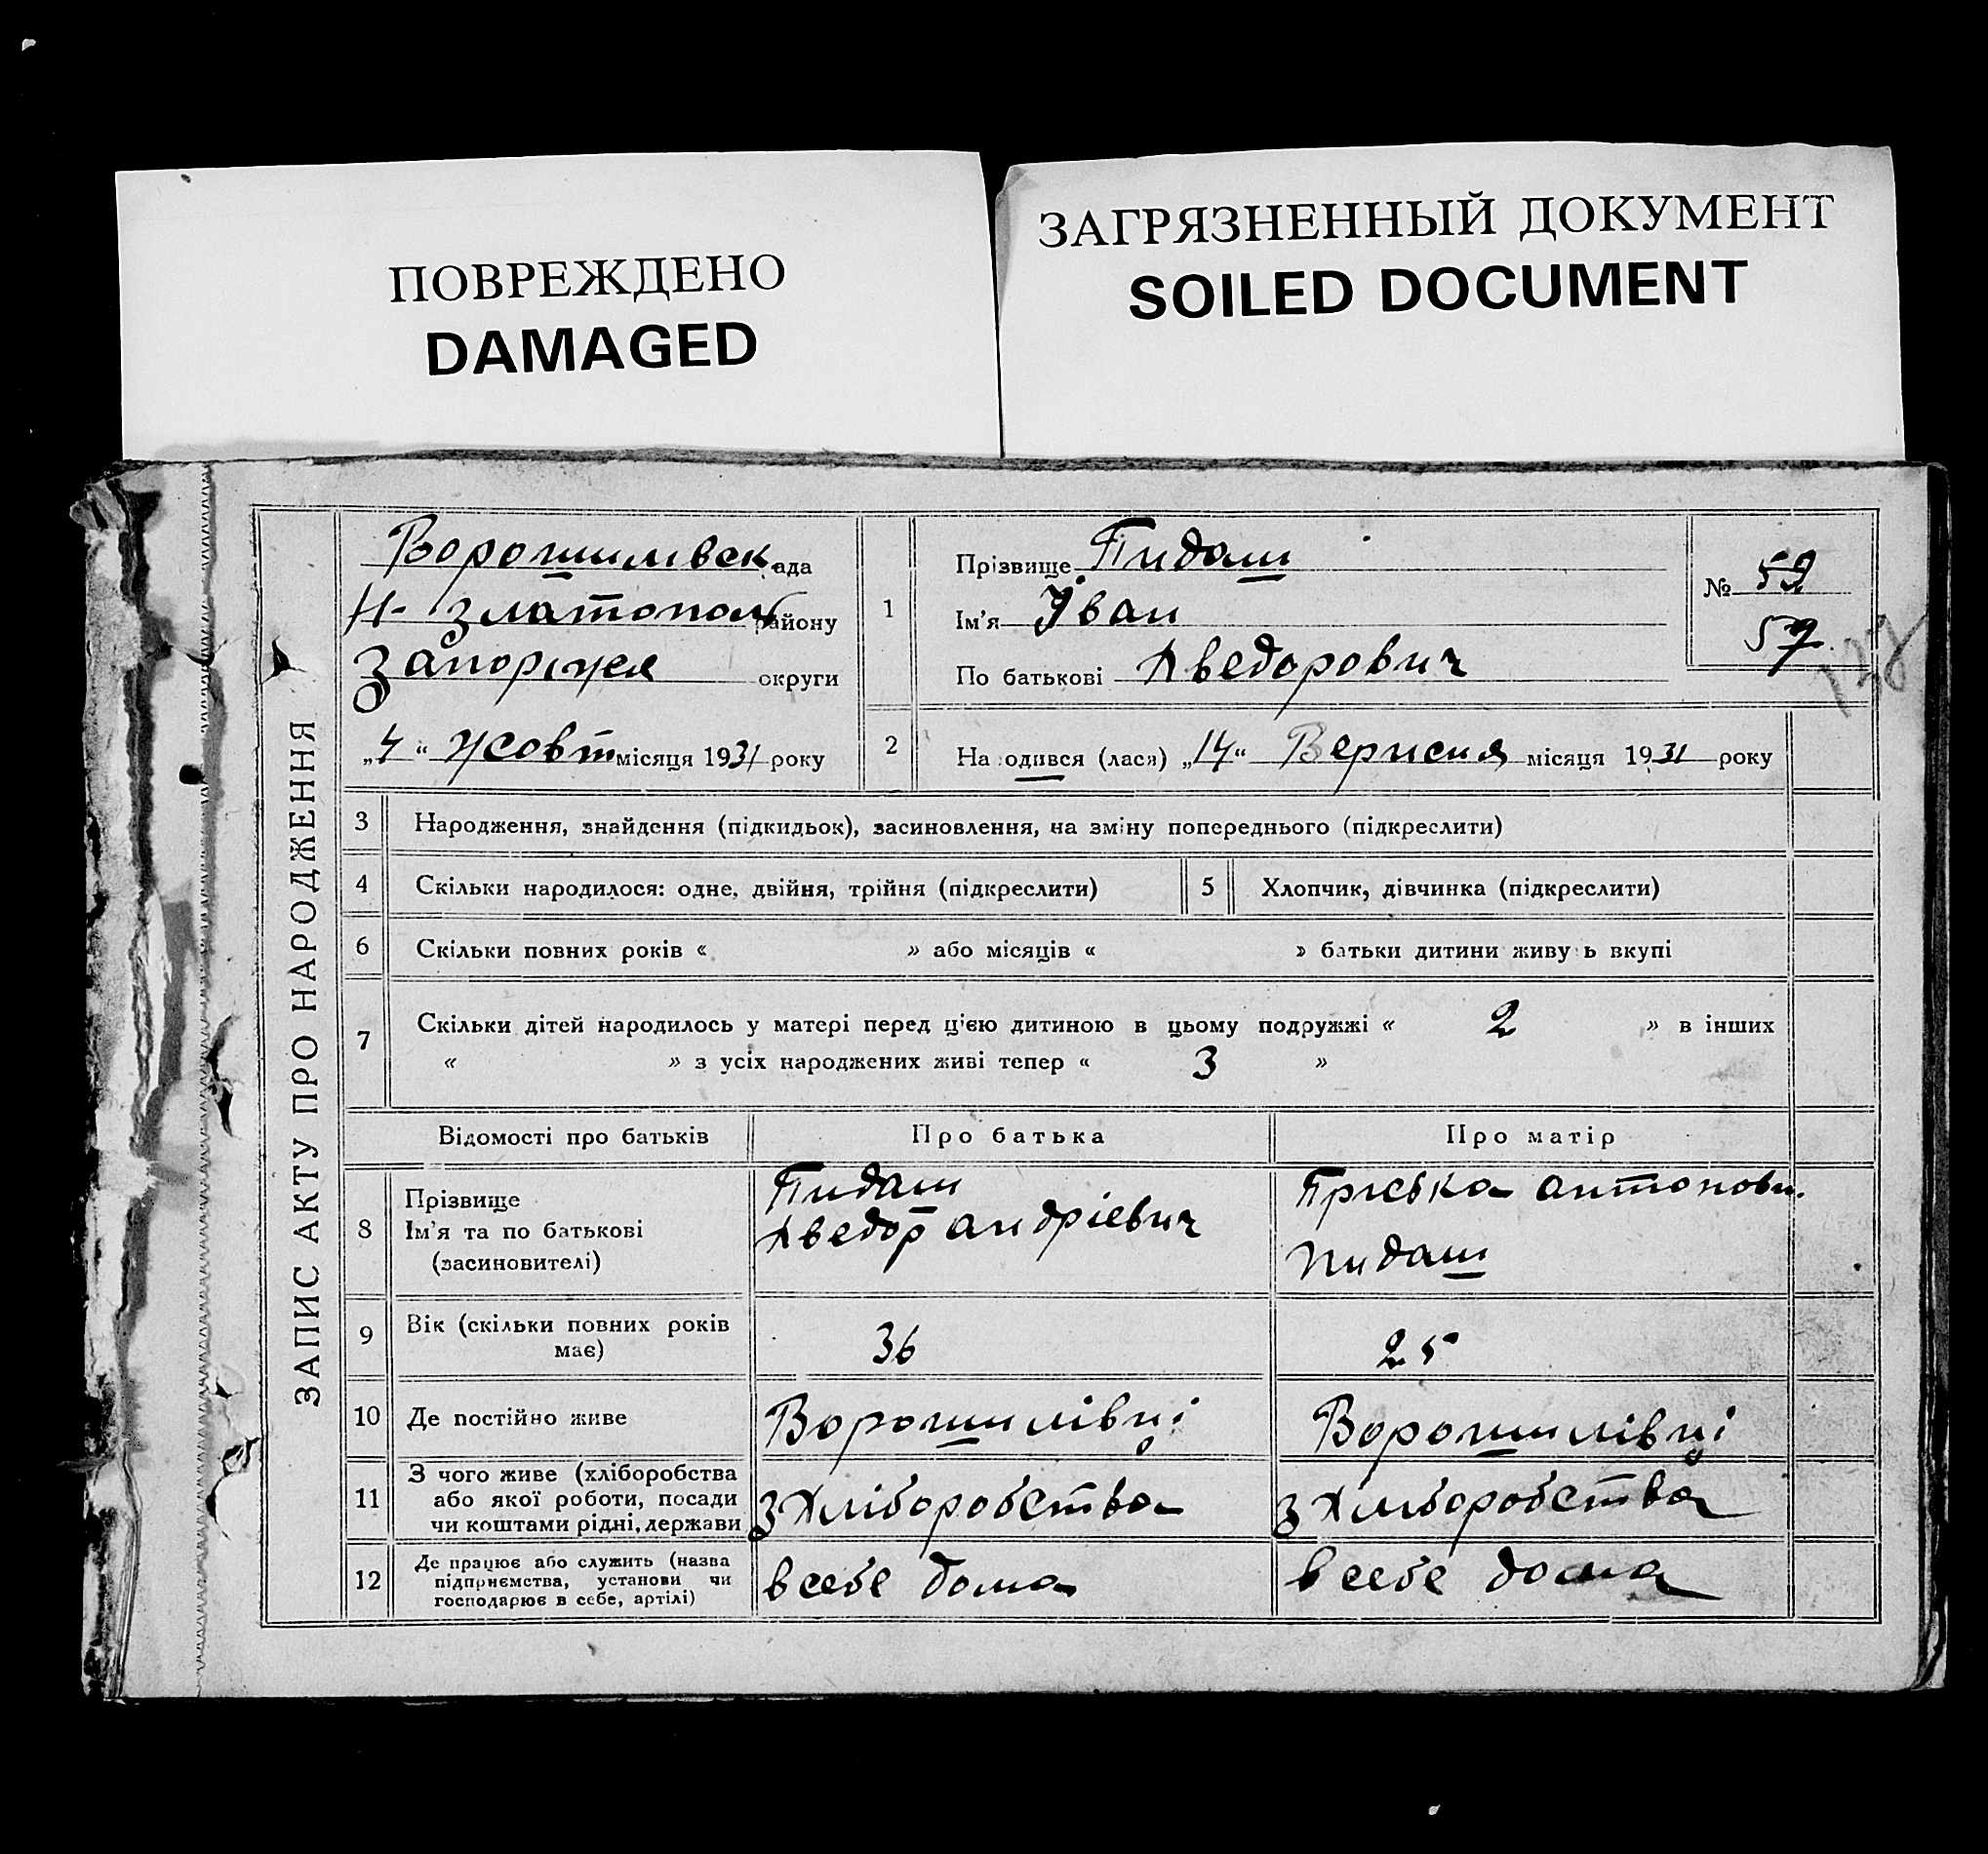 ПОВРЕЖДЕНО
DAMAGED
ЗАГРЯЗНЕННЫЙ ДОКУМЕНТ
SOILED DOCUMENT
ЗАПИС АКТУ ПРО НАРОДЖЕННЯ
Ворошилівск ада
Н-Златопол району
Запоріжжя округи
„4“ жовт місяця 1931 року
1 Прізвище Пидаш
Ім'я Іван
По батькові Хведорович
№ 59
57
128
2 На одився (лася) „14“ Вернсня місяця 1931 року
3 Народження, знайдення (підкидьок), засиновлення, на зміну попереднього (підкреслити)
4 Скільки народилося: одне, двійня, трійня (підкреслити) 5 Хлопчик, дівчинка (підкреслити)
6 Скільки повних років « » або місяців « » батьки дитини живу ь вкупі
7 Скільки дітей народилось у матері перед ц'єю дитиною в цьому подружжі « 2 » в інших
« » з усіх народжених живі тепер « 3 »
Відомості про батьків Про батька Про матір
8 Прізвище
Ім'я та по батькові
(засиновителі)
Пидаш
Хведор андрієвич
Приська антонови.
Пидаш
9 Вік (скільки повних років
має)
36
25
10 Де постійно живе Ворошилівці Ворошилівці
11 З чого живе (хліборобства
або якої роботи, посади
чи коштами рідні, держави
з хліборобства
з хліборобства
12 Де працює або служить (назва
підприємства, установи чи
господарює в себе, артілі)
в себе дома
в себе дома